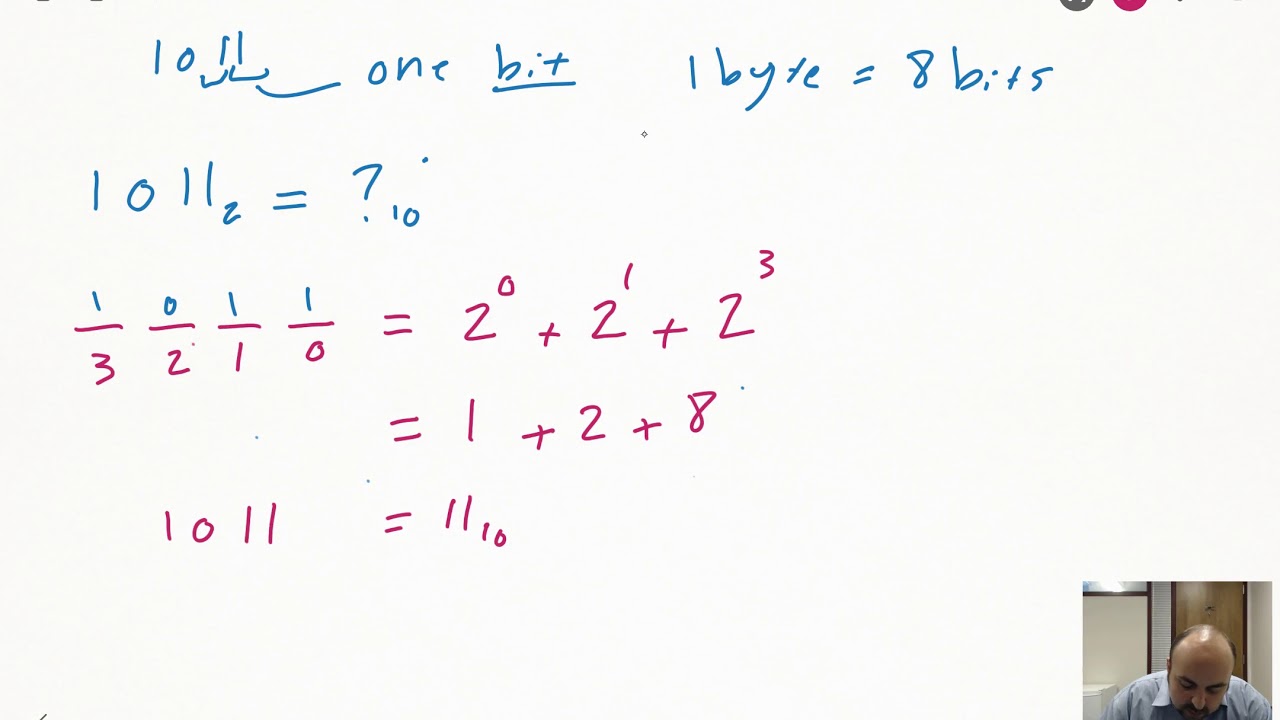 1011 one bit 1 byte = 8 bits
1011₂ = ?₁₀
1 0 1 1
3 2 1 0 = 2⁰ + 2¹ + 2³
= 1 + 2 + 8
1011 = 11₁₀